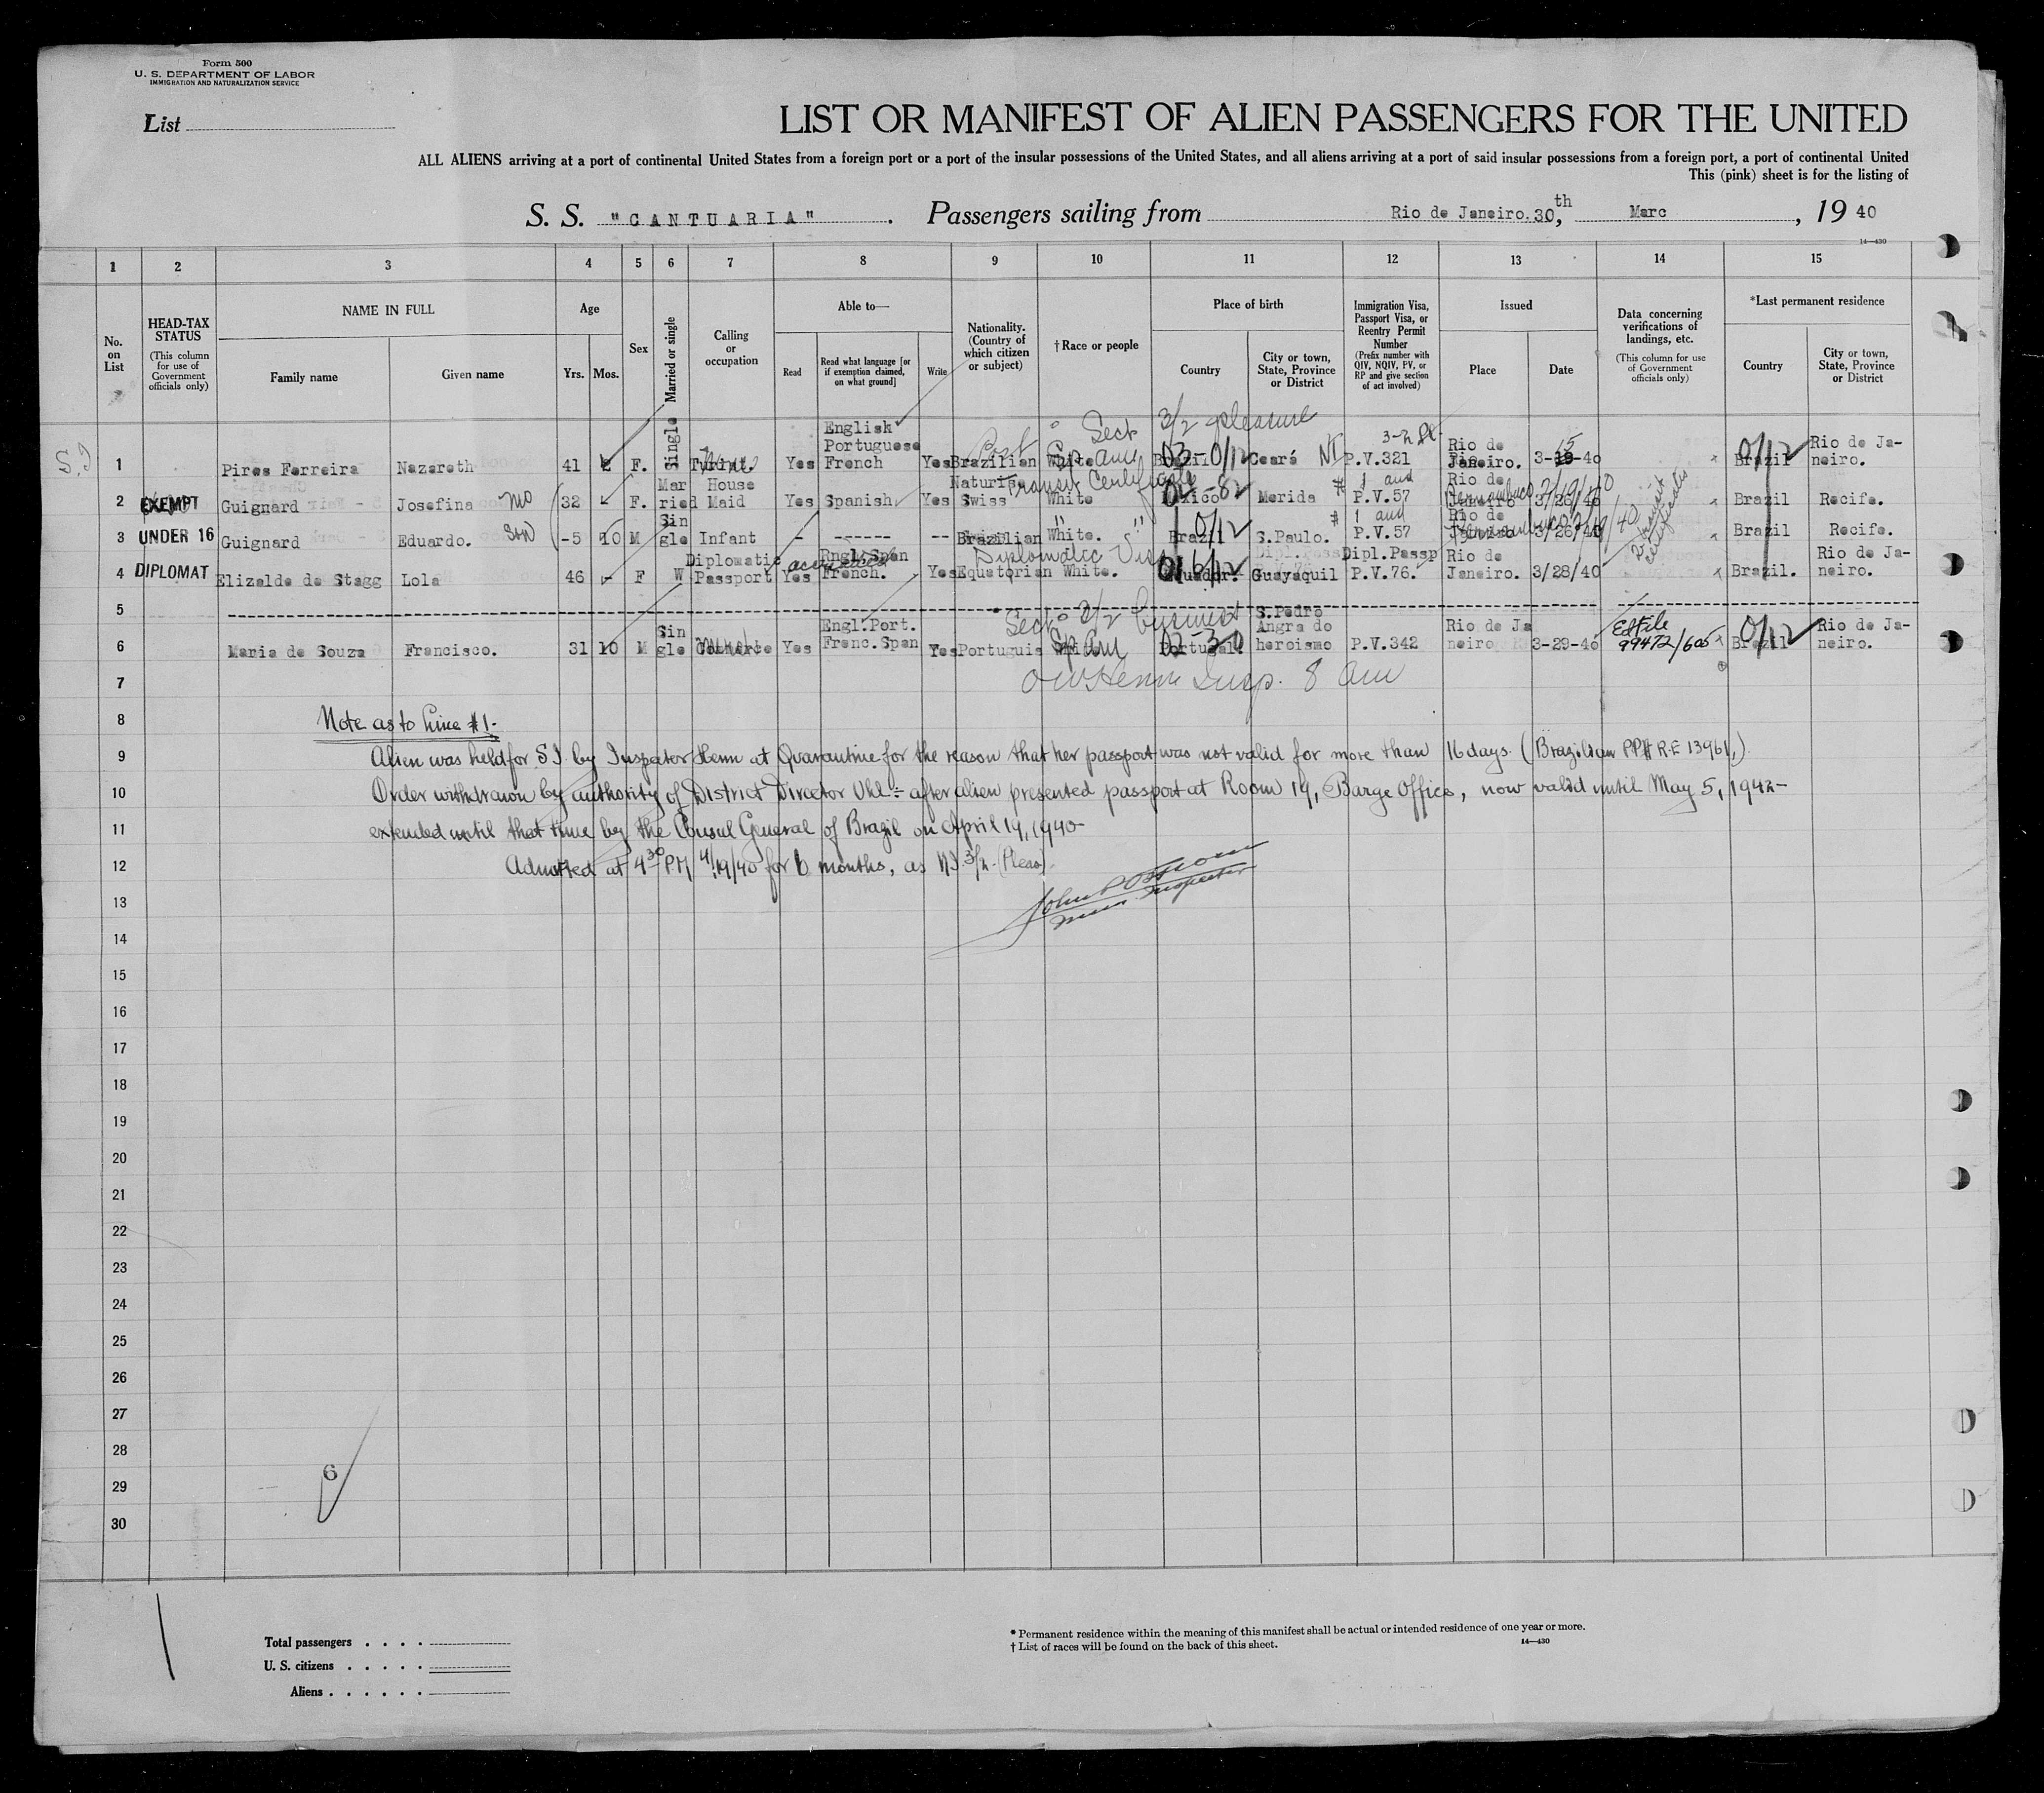 Form 500
U. S. DEPARTMENT OF LABOR
IMMIGRATION AND NATURALIZATION SERVICE
List
LIST OR MANIFEST OF ALIEN PASSENGERS FOR THE UNITED
ALL ALIENS arriving at a port of continental United States from a foreign port or a port of the insular possessions of the United States, and all aliens arriving at a port of said insular possessions from a foreign port, a port of continental United
This (pink) sheet is for the listing of
S. S. "CANTUARIA". Passengers sailing from Rio de Janeiro. 30,th Marc, 19 40
14—430
1 2 3 4 5 6 7 8 9 10 11 12 13 14 15
No. on List
HEAD-TAX STATUS (This column for use of Government officials only)
NAME IN FULL
Family name Given name
Age
Yrs. Mos.
Sex
Married or single
Calling or occupation
Able to—
Read
Read what language [or if exemption claimed, on what ground]
Write
Nationality. (Country of which citizen or subject)
†Race or people
Place of birth
Country
City or town, State, Province or District
Immigration Visa, Passport Visa, or Reentry Permit Number (Prefix number with QIV, NQIV, PV, or RP and give section of act involved)
Issued
Place Date
Data concerning verifications of landings, etc. (This column for use of Government officials only)
*Last permanent residence
Country
City or town, State, Province or District
Sect 3/2 pleasure
S.I 1 Pires Ferreira Nazareth 41 F. Single Yes English Portuguese French Yes Brazilian White Sp. am Brazil 03-0/12 Ceará P.V.321 Rio de Janeiro. 3-15-40 Brazil 0/12 Rio de Janeiro.
Transit Certificate
2 EXEMPT Guignard Josefina 32 F. Married House Maid Yes Spanish Yes Naturise Swiss White Mexico Merida # 1 and P.V.57 Rio de Janeiro Pernambuco 3/26/40 Brazil Recife.
3 UNDER 16 Guignard Eduardo. -5 10 M Single Infant - ------ -- Brazilian White. " " Brazil 0/12 S.Paulo. # 1 and P.V.57 Rio de Janeiro 3/26/40 Brazil Recife.
2 transit certificates
Diplomatic Visa
4 DIPLOMAT Elizalde de Stagg Lola 46 - F W Diplomatic Passport Yes Engl.Span French. Yes Equatorian White. Ecuador. Guayaquil Dipl.Passp P.V.76. Rio de Janeiro. 3/28/40 Brazil. Rio de Janeiro.
5
Sect 3/2 business
6 Maria de Souza Francisco. 31 10 M Single Commerce Yes Engl.Port. Frenc.Span Yes Portuguis Sp am Portugal. 02-30 S.Pedro Angra do heroismo P.V.342 Rio de Janeiro 3-29-40 Ed File 99472/605 Brazil 0/12 Rio de Janeiro.
7 Insp. 8 am
8 Note as to Line #1-
9 Alien was held for S.I. by Inspector Henn at Quarantine for the reason that her passport was not valid for more than 16 days. (Brazilian PP# R.E 13961,)
10 Order withdrawn by authority of District Director Uhl - after alien presented passport at Room 19, Barge Office, now valid until May 5, 1942-
11 extended until that time by the Consul General of Brazil on April 19, 1940-
12 Admitted at 4 30 PM 4/19/40 for 6 months, as N.I. 3/2 (Pleas)
13 Inspector
14
15
16
17
18
19
20
21
22
23
24
25
26
27
28
29 6
30
Total passengers
U. S. citizens
Aliens
* Permanent residence within the meaning of this manifest shall be actual or intended residence of one year or more.
† List of races will be found on the back of this sheet.
14—430